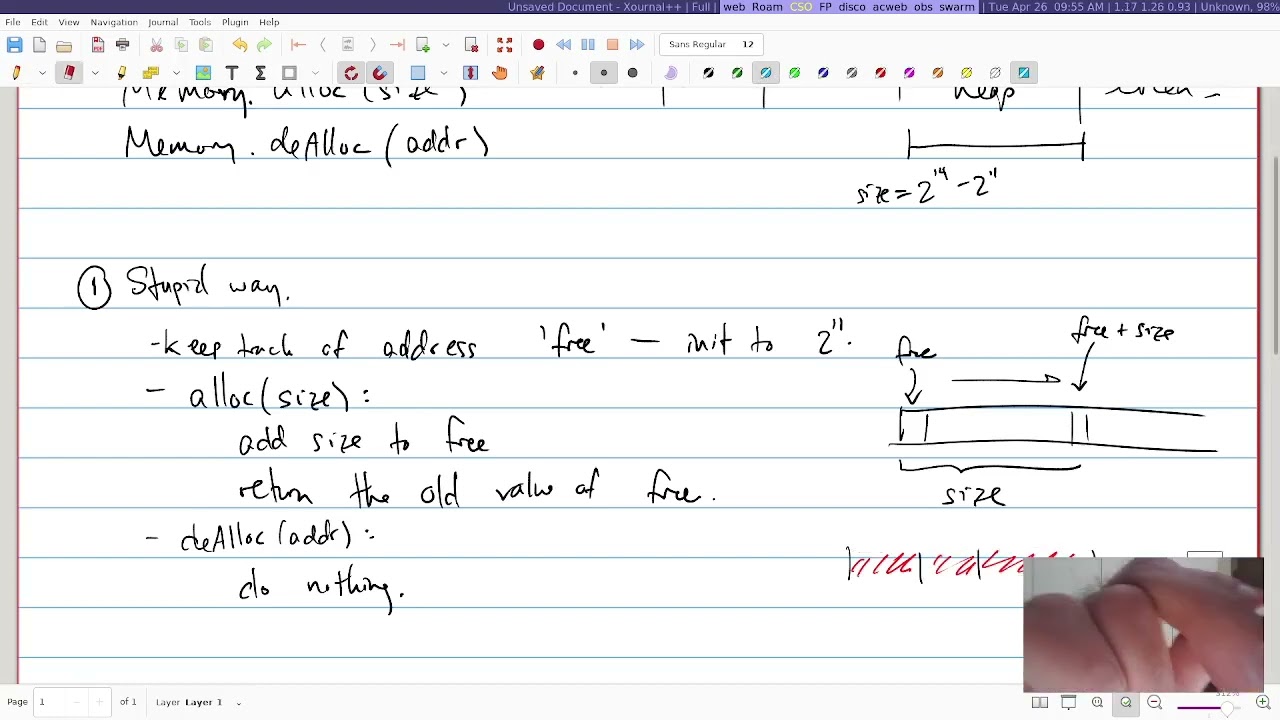 Unsaved Document - Xournal++ | Full | web Roam CSO FP disco acweb obs swarm | Tue Apr 26 09:55 AM | 1.17 1.26 0.93 | Unknown, 98%
File Edit View Navigation Journal Tools Plugin Help
Sans Regular 12
Memory. alloc (size)
heap
Memory. deAlloc (addr)
size = 2^14 - 2^11
① Stupid way.
- keep track of address 'free' — init to 2^11.
free
free + size
- alloc(size):
add size to free
return the old value of free.
size
- deAlloc(addr):
do nothing.
Page 1 of 1 Layer Layer 1